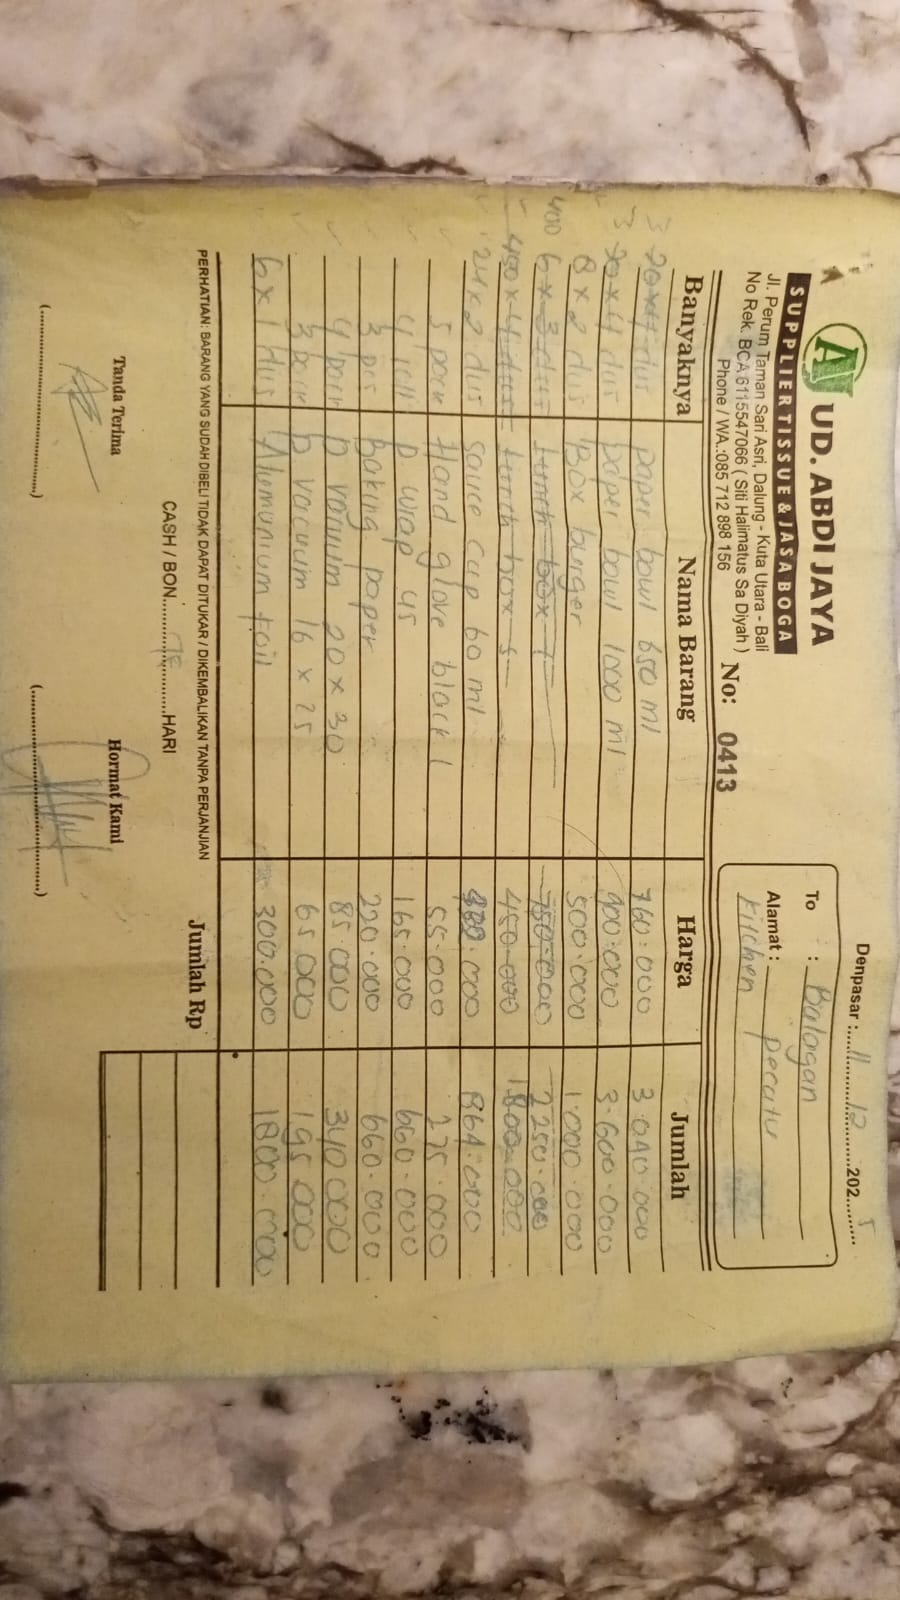 UD. ABDI JAYA
SUPPLIER TISSUE & JASA BOGA
Jl. Perum Taman Sari Asri, Dalung - Kuta Utara - Bali
No Rek. BCA 6115547066 ( Siti Halimatus Sa Diyah )
Phone / WA.:085 712 898 156
No: 0413
Denpasar : 11 12 202 5
To : Balagan
Alamat : pecatu
kitchen
Banyaknya Nama Barang Harga Jumlah
3 dus paper bowl 650 ml 760.000 3.040.000
3 20 x 4 dus paper bowl 1000 ml 900.000 3.600.000
8 x 2 dus Box burger 500.000 1.000.000
400 6 x 3 dus Lunch box 750.000 2.250.000
450 x 4 dus Lunch box s 450.000 1.800.000
24 x 2 dus sauce cup 60 ml .000 864.000
5 pack Hand glove black l 55.000 275.000
4 roll p wrap 45 165.000 660.000
3 pcs Baking paper 220.000 660.000
4 pack p vacuum 20 x 30 85.000 340.000
3 pack p vacuum 16 x 25 65.000 195.000
6 x 1 dus Alumunium foil 300.000 1800.000
PERHATIAN: BARANG YANG SUDAH DIBELI TIDAK DAPAT DITUKAR / DIKEMBALIKAN TANPA PERJANJIAN
Jumlah Rp
CASH / BON HARI
Tanda Terima Hormat Kami